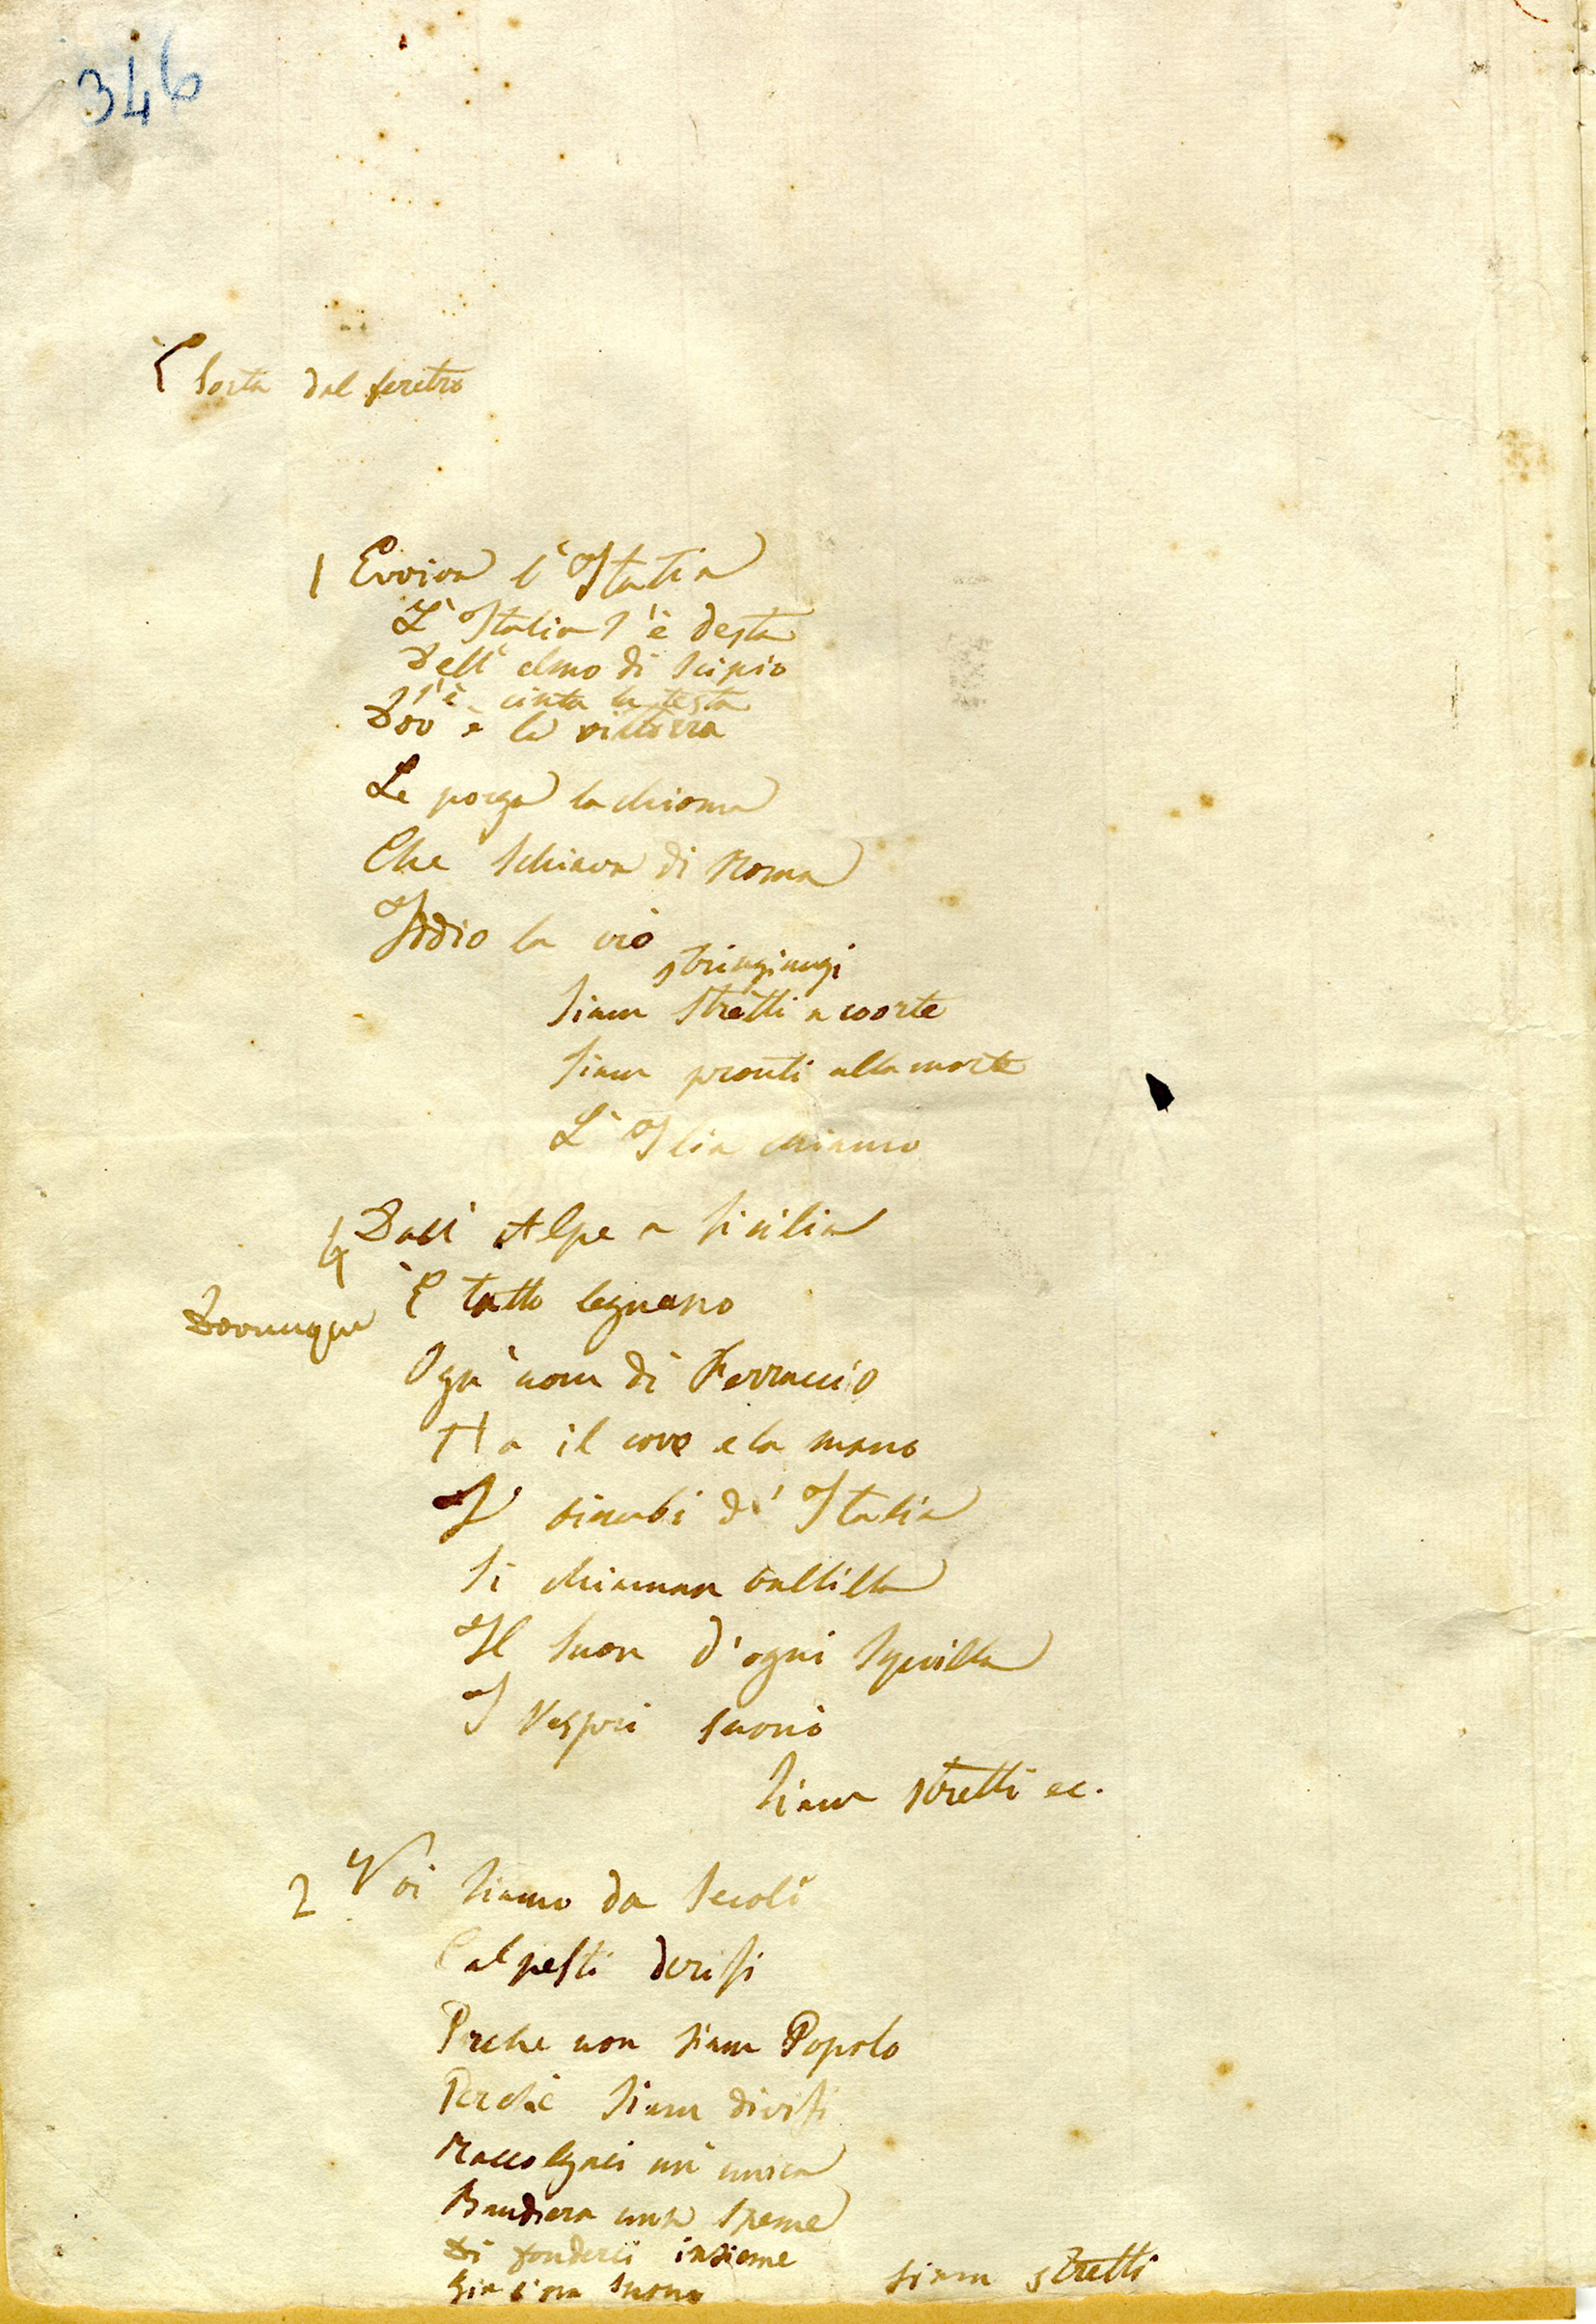 346
È sorta dal feretro
1 Evviva l'Italia
L'Italia s'è desta
Dell'elmo di Scipio
S'è cinta la testa
Dov'è la vittoria
Le porga la chioma
Che schiava di Roma
Iddio la creò
stringiamci
Siam stretti a coorte
Siam pronti alla morte
L'Itlia chiamò
4 Dall'Alpe a Sicilia
Dovunque È tutto Legnano
Ogn'uom di Ferruccio
Ha il core e la mano
I bimbi d'Italia
Si chiaman Ballilla
Il suon d'ogni squilla
I Vespri suonò
Siam stretti ec.
2 Noi siamo da secoli
Calpesti derisi
Perche non siam Popolo
Perchè siam divisi
Raccolgaci un'unica
Bandiera una speme
Di fonderci insieme
Già l'ora suonò
Siam stretti